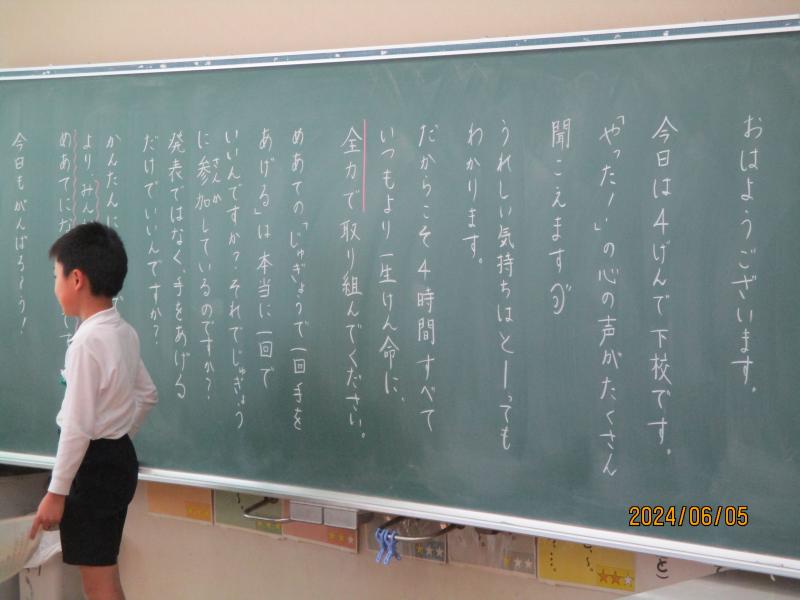 おはようございます。
今日は4げんで下校です。
「やった！」の心の声がたくさん
聞こえます
うれしい気持ちはとーっても
わかります。
だからこそ4時間すべて
いつもより一生けん命に、
全力で取り組んでください。
めあての「じゅぎょうで一回手を
あげる」は本当に一回で
いいんですか？それでじゅぎょう
に参加しているのですか？
さんか
発表ではなく、手をあげる
だけでいいんですか？
かんたんに
より、みん
めあてにな
今日もがんばろう！
2024/06/05